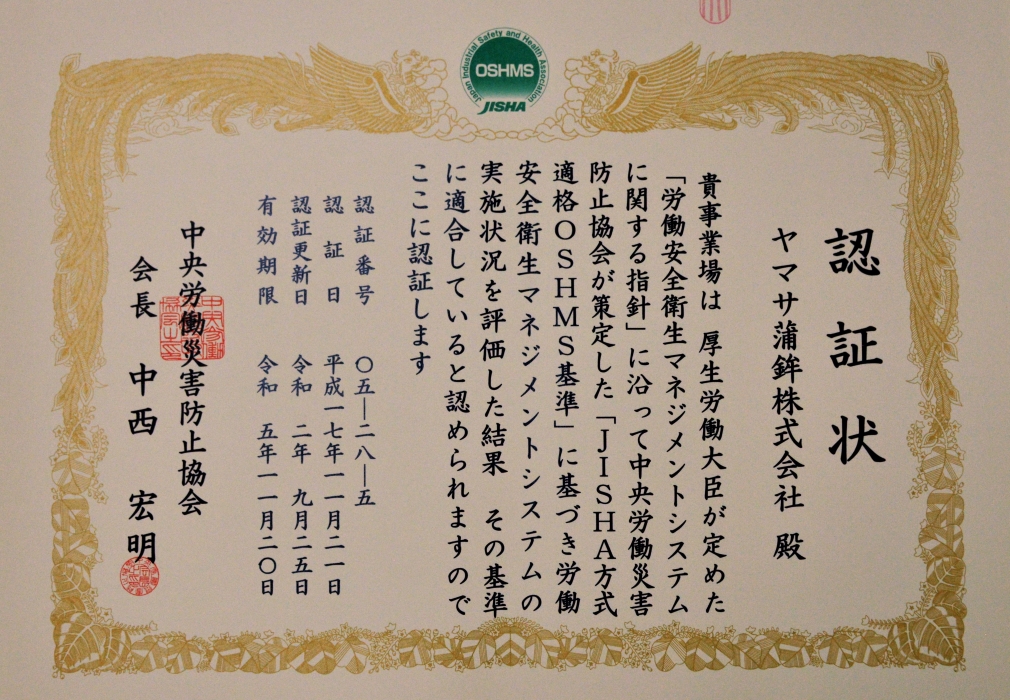 Japan Industrial Safety and Health Association
OSHMS
JISHA
認証状
ヤマサ蒲鉾株式会社 殿
貴事業場は 厚生労働大臣が定めた
「労働安全衛生マネジメントシステム
に関する指針」に沿って中央労働災害
防止協会が策定した「JISHA方式
適格OSHMS基準」に基づき労働
安全衛生マネジメントシステムの
実施状況を評価した結果 その基準
に適合していると認められますので
ここに認証します
認証番号 〇五―二八―五
認証日 平成一七年一一月二一日
認証更新日 令和 二年 九月二五日
有効期限 令和 五年一一月二〇日
中央労働災害防止協会
会長 中西 宏明